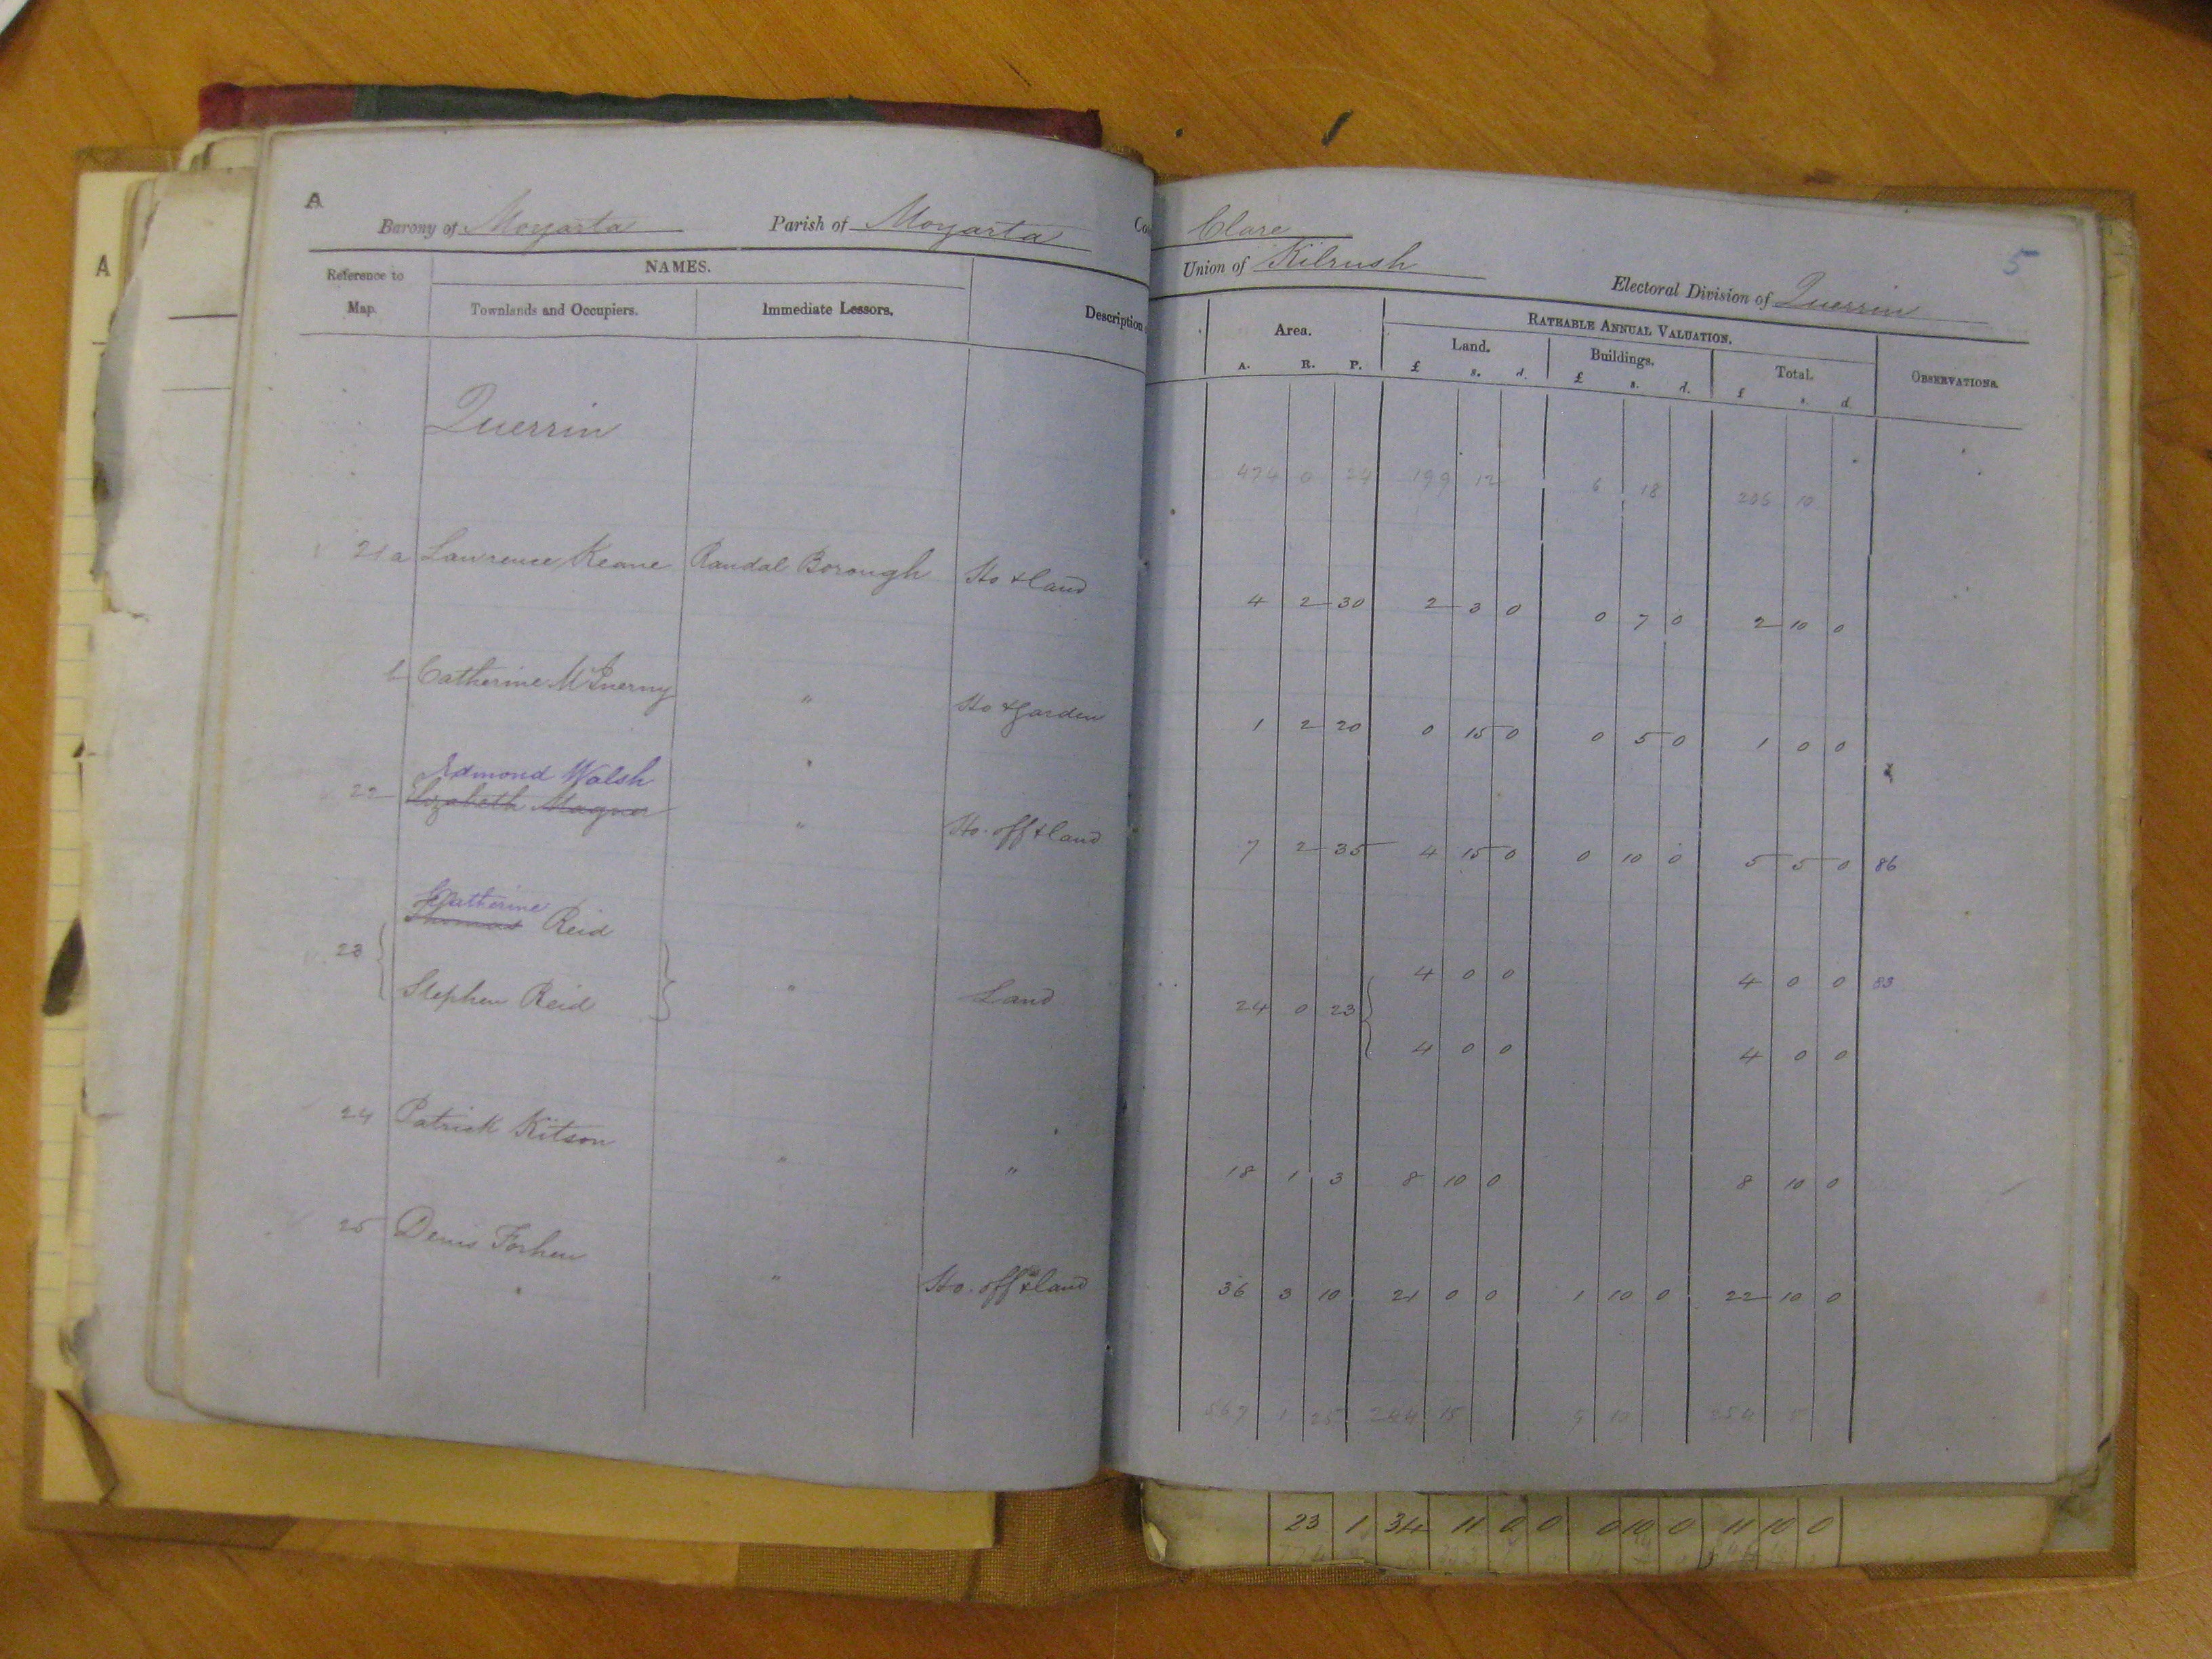 A
A
Barony of Moyarta Parish of Moyarta Co
Clare
Union of Kilrush Electoral Division of Querrin
5
Reference to Map. NAMES. Townlands and Occupiers. Immediate Lessors. Description
Area. A. R. P. RATEABLE ANNUAL VALUATION. Land. £ s. d. Buildings. £ s. d. Total. £ s. d OBSERVATIONS.
Querrin
474 0 24 199 12 6 18 206 10
21 a Lawrence Keane Randal Borough Ho & land 4 2 30 2 3 0 0 7 0 2 10 0
b Catherine McInerny " Ho & garden 1 2 20 0 15 0 0 5 0 1 0 0
Edmond Walsh
22 Elizabeth Magner " Ho. off & land 7 2 35 4 15 0 0 10 0 5 5 0 86
Catherine
Thomas Reid 4 0 0 4 0 0 83
23 " Land 24 0 23
Stephen Reid 4 0 0 4 0 0
24 Patrick Kitson " " 18 1 3 8 10 0 8 10 0
25 Denis Forhen " Ho. offs & land 36 3 10 21 0 0 1 10 0 22 10 0
567 1 25 244 15 9 10 254 5
23 1 34 11 0 0 0 10 0 11 10 0